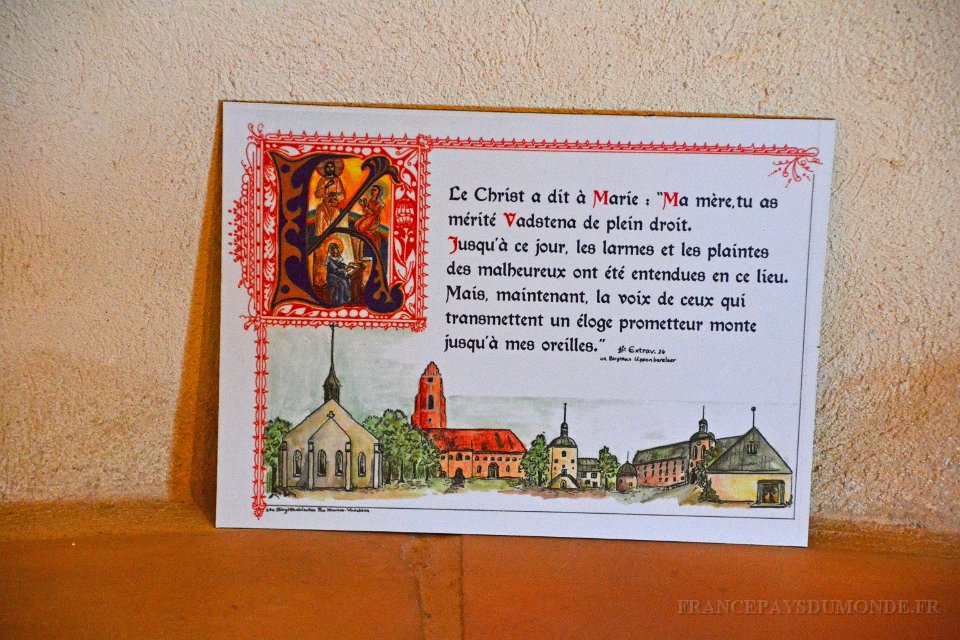 Le Christ a dit à Marie : "Ma mère,tu as
mérité Vadstena de plein droit.
Jusqu'à ce jour, les larmes et les plaintes
des malheureux ont été entendues en ce lieu.
Mais, maintenant, la voix de ceux qui
transmettent un éloge prometteur monte
jusqu'à mes oreilles."
Extrav. 24
ur Birgittas Uppenbarelser
FRANCEPAYSDUMONDE.FR